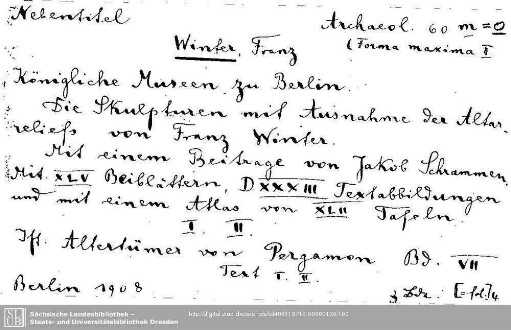 Nebentitel
Archaeol. 60 m = 0
Winter, Franz
(Forma maxima I
Königliche Museen zu Berlin.
Die Skulpturen mit Ausnahme der Altar-
reliefs von Franz Winter.
Mit einem Beitrage von Jakob Schrammen,
Mit XLV Beiblättern, DXXXIII Textabbildungen
und mit einem Atlas von XLII Tafeln.
I. II.
Ist. Altertümer von Pergamon Bd. VII
Text I. II.
Berlin 1908
3 Bde. [= fol.] 4
Sächsische Landesbibliothek –
Staats- und Universitätsbibliothek Dresden